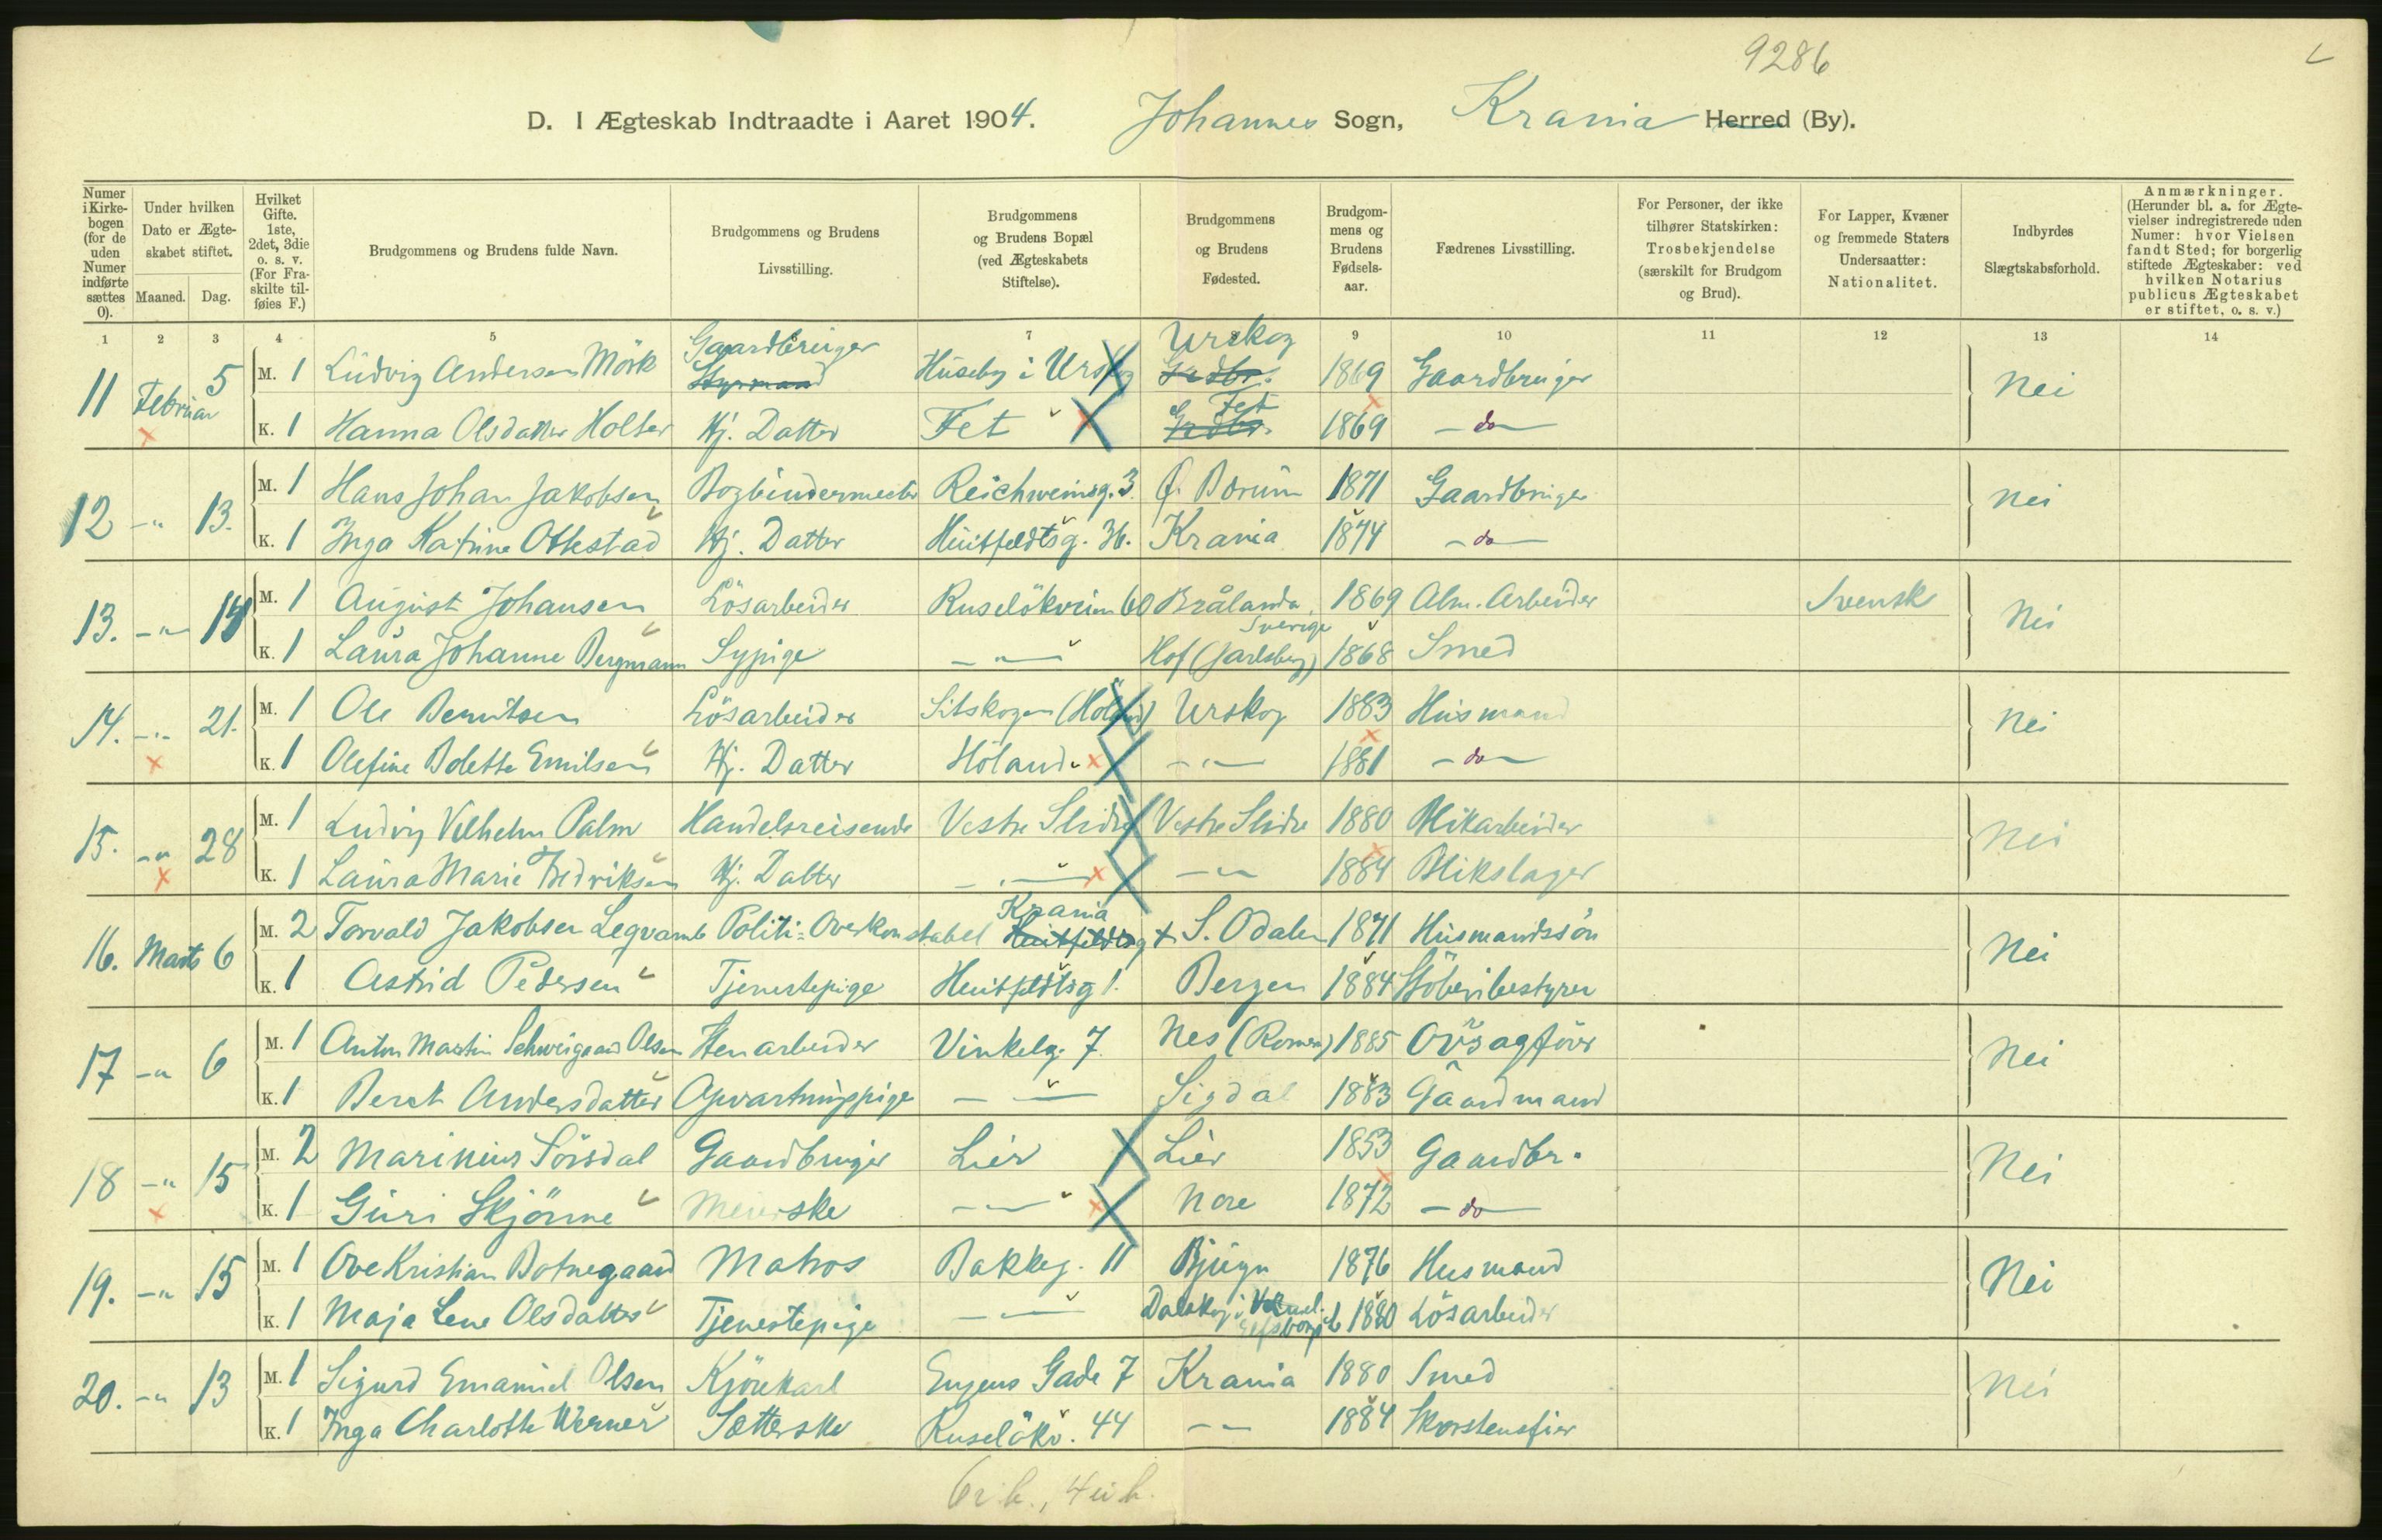 9286
D. I Ægteskab Indtraadte i Aaret 1904. Johannes Sogn, Krania Herred (By).
Numer i Kirkebogen (for de uden Numer indførte sættes 0). | Under hvilken Dato er Ægteskabet stiftet. Maaned. Dag. | Hvilket Gifte. 1ste, 2det, 3die o. s. v. (For Fraskilte tilføies F.) | Brudgommens og Brudens fulde Navn. | Brudgommens og Brudens Livsstilling. | Brudgommens og Brudens Bopæl (ved Ægteskabets Stiftelse). | Brudgommens og Brudens Fødested. | Brudgommens og Brudens Fødselsaar. | Fædrenes Livsstilling. | For Personer, der ikke tilhører Statskirken: Trosbekjendelse (særskilt for Brudgom og Brud). | For Lapper, Kvæner og fremmede Staters Undersaatter: Nationalitet. | Indbyrdes Slægtskabsforhold. | Anmærkninger. (Herunder bl. a. for Ægtevielser indregistrerede uden Numer: hvor Vielsen fandt Sted; for borgerlig stiftede Ægteskaber: ved hvilken Notarius publicus Ægteskabet er stiftet, o. s. v.)
1 2 3 4 5 7 9 10 11 12 13 14
11 Februar 5 M. 1 Ludvig Andersen Mörk Gaardbruger Styrmand Huseby i Urskog Urskog Gaardbr. 1869 Gaardbruger Nei
K. 1 Hanna Olsdatter Holter Hj. Datter Fet Fet 1869 - do -
12 - " 13. M. 1 Hans Johan Jakobsen Bogbindermester Reichweinsg. 3. Ø. Bærum 1871 Gaardbruger Nei
K. 1 Inga Katrine Ottestad Hj. Datter Huitfeldtsg. 36. Krania 1874 - do -
13. - " - M. 1 August Johansen Lösarbeider Ruselökveien 60 Brålanda, Sverige 1869 Alm. Arbeider Svensk Nei
K. 1 Laura Johanne Bergmann Sypige - " - Hof (Jarlsberg) 1868 Smed
14. - " - 21. M. 1 Ole Berntsen Lösarbeider Sitskogen (Höland) Urskog 1883 Husmand Nei
K. 1 Olefine Bolette Emilsen Hj. Datter Höland - " - 1881 - do -
15. - " 28 M. 1 Ludvig Vilhelm Palm Handelsreisende Vestre Slidre Vestre Slidre 1880 Blikarbeider Nei
K. 1 Laura Marie Fredriksen Hj. Datter - " - - " - 1884 Blikslager
16. Marts 6 M. 2 Torvald Jakobsen Legvamb Politi-Overkonstabel Krania Huitfeldtsg S. Odalen 1871 Husmandssön Nei
K. 1 Astrid Pedersen Tjenestepige Huitfeldtsg 1. Bergen 1884 Stöberibestyrer
17 - " 6 M. 1 Anton Martin Schweigaard Olsen Stenarbeider Vinkelg. 7. Nes (Romer.) 1885 Ovrsagförer Nei
K. 1 Berat Andersdatter Opvartningspige - " - Sigdal 1883 Gaardmand
18 - " 15 M. 2 Marinius Sörsdal Gaardbruger Lier Lier 1853 Gaardbr. Nei
K. 1 Guri Skjönne Meierske - " - Nore 1872 - do -
19. - " 15 M. 1 Ove Kristian Botnegaard Matros Bakkeg. 11 Bjugn 1876 Husmand Nei
K. 1 Maja Lene Olsdatter Tjenestepige - " - 1880 Lösarbeider
20. - " 13 M. 1 Sigurd Emanuel Olsen Kjörekarl Eugens Gade 7 Krania 1880 Smed Nei
K. 1 Inga Charlotte Werner Sætterske Ruselökv. 44 - " - 1884 Skorstensfeier